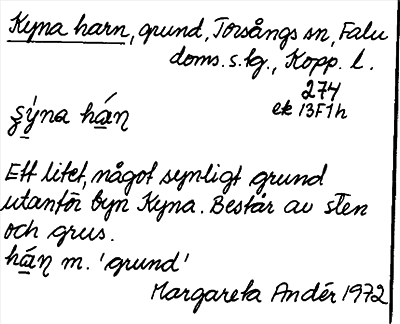 Kyna harn, grund, Torsångs sn, Falu
doms. s. tg., Kopp. l.
274
ek 13F1h
ʂýna háɳ
Ett litet, något synligt grund
utanför byn Kyna. Består av sten
och grus.
háɳ m. 'grund'
Margareta Andér 1972